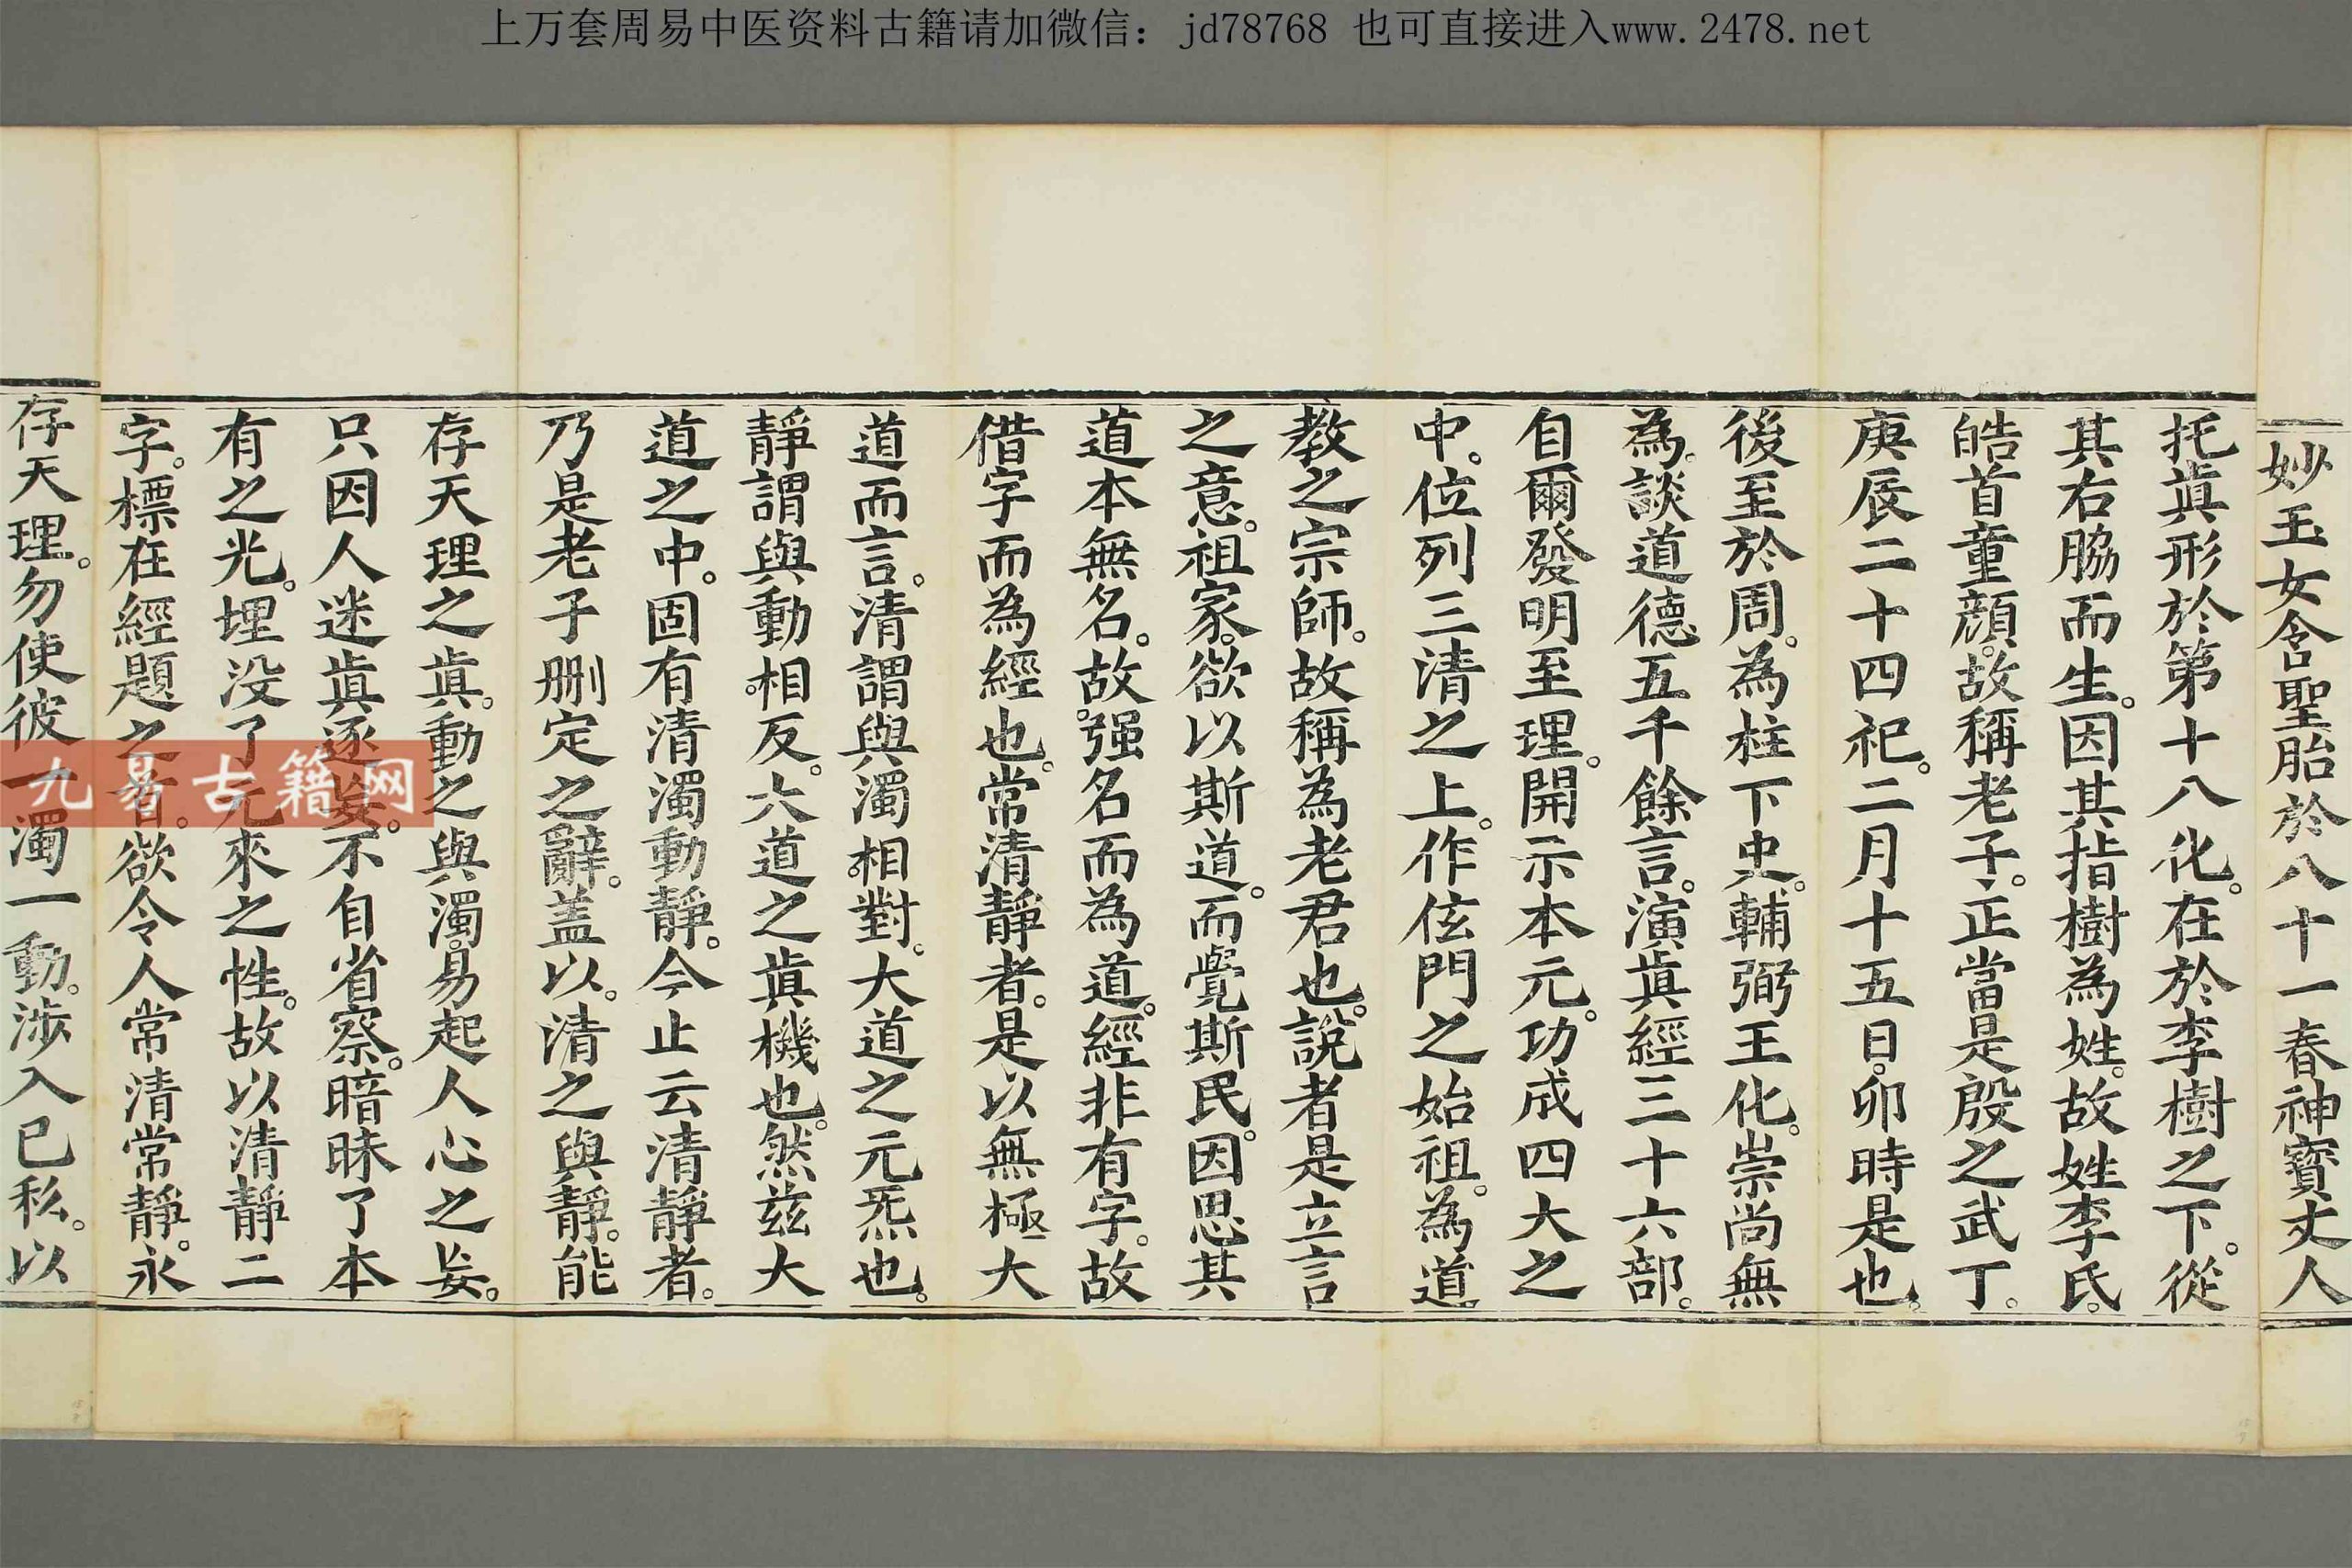 上万套周易中医资料古籍请加微信：jd78768 也可直接进入www.2478.net
妙玉女含聖胎於八十一春神寶丈人
托眞形於第十八化。在於李樹之下。從
其右脇而生。因其指樹為姓。故姓李氏。
皓首童顔。故稱老子。正當是殷之武丁。
庚辰二十四祀。二月十五日。卯時是也。
後至於周。為柱下史。輔弼王化。崇尚無
為。談道德五千餘言。演眞經三十六部。
自爾發明至理。開示本元。功成四大之
中。位列三清之上。作伭門之始祖。為道
教之宗師。故稱為老君也。說者是立言
之意。祖家。欲以斯道。而覺斯民。因思其
道本無名。故强名而為道。經非有字。故
借字而為經也。常清靜者。是以無極大
道而言。清謂與濁相對。大道之元炁也。
靜謂與動相反。大道之眞機也。然兹大
道之中。固有清濁動靜。今止云清靜者。
乃是老子删定之辭。盖以。清之與靜。能
存天理之眞。動之與濁。易起人心之妄。
只因人迷眞逐妄。不自省察。暗昧了本
有之光。埋没了元來之性。故以清靜二
字。標在經題之首。欲令人常清常靜。永
存天理。勿使彼一濁一動。涉入已私。以
九易古籍网